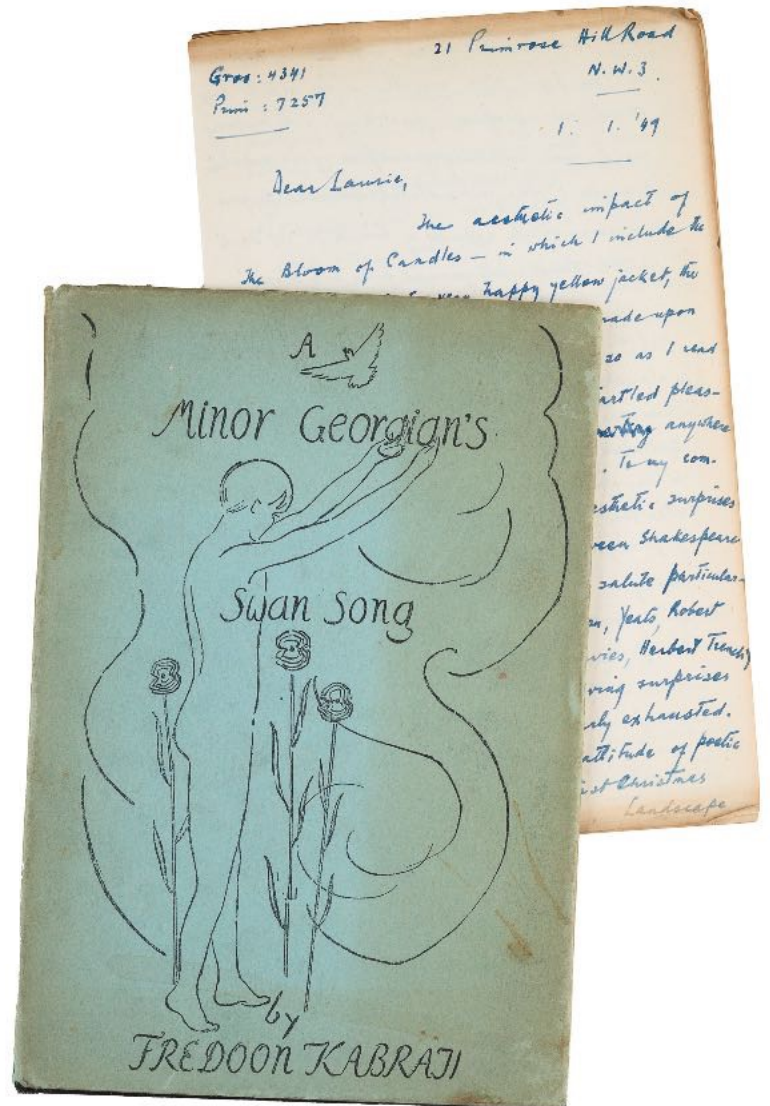 21 Primrose Hill Road
N.W.3.
Gros: 4341
Prim: 7257
1. 1. '49
Dear Laurie,
The aesthetic impact of
The Bloom of Candles – in which I include the
very happy yellow jacket, the
made upon
so as I read
startled pleas-
anywhere
. To my com-
esthetic surprises
ween Shakespeare
salute particular-
n, Yeats, Robert
vies, Herbert Trench)
ving surprises
rly exhausted.
attitude of poetic
ist Christmas
Landscape
A
Minor Georgian's
Swan Song
by
FREDOON KABRAJI